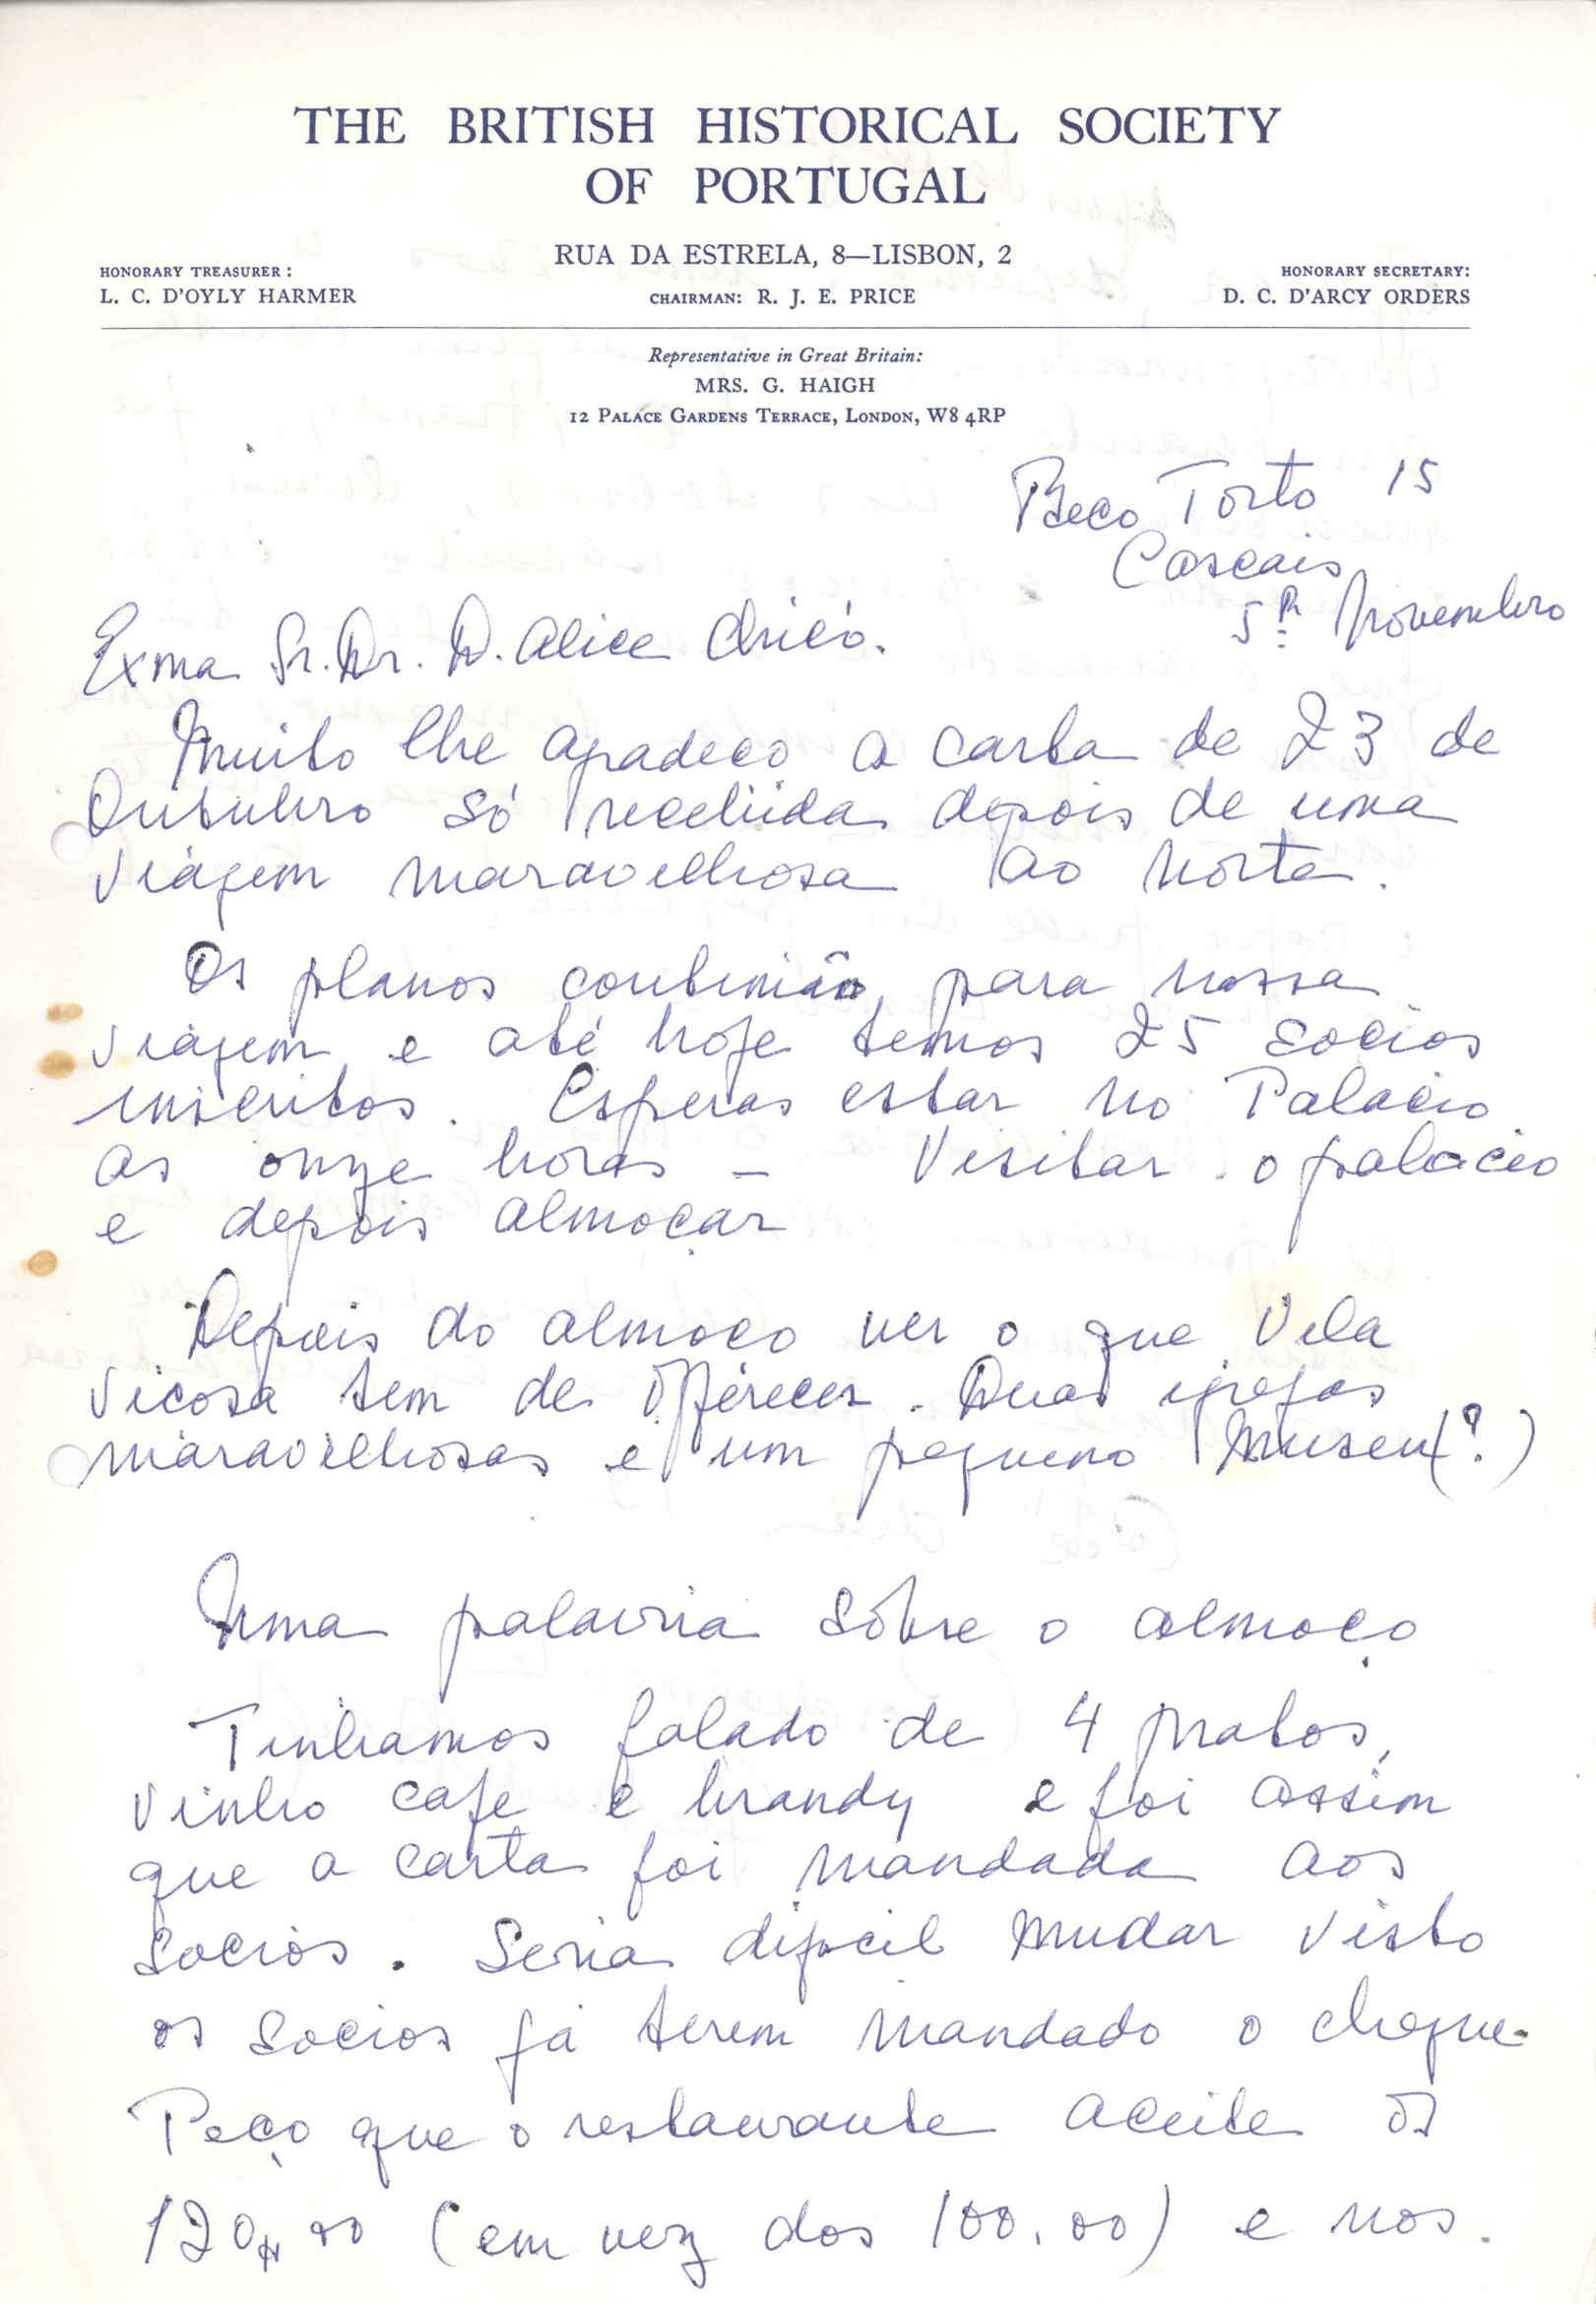 THE BRITISH HISTORICAL SOCIETY
OF PORTUGAL
RUA DA ESTRELA, 8—LISBON, 2
HONORARY TREASURER :
L. C. D'OYLY HARMER
CHAIRMAN: R. J. E. PRICE
HONORARY SECRETARY:
D. C. D'ARCY ORDERS
Representative in Great Britain:
MRS. G. HAIGH
12 PALACE GARDENS TERRACE, LONDON, W8 4RP
Beco Torto 15
Cascais
5 Novembro
Exma Sr. Dr. D. Alice
Muito lhe agradeco a carta de 23 de
Outubro só recebida depois de uma
viagem maravelhosa ao norte.
Os planos continuão para nossa
viagem e até hoje temos 25 socios
inscritos. Esperas estar no Palacio
as onze horas – Visitar o palacio
e depois almoçar
Depois do almoco ver o que Vila
Vicosa tem de offerecer. Duas igrejas
maravelhosas e um pequeno Museu(?)
Uma palavria sôbre o almoço
Tinhamos falado de 4 pratos,
vinho cafe e brandy e foi assim
que a carta foi mandada aos
socios. Seria dificil mudar visto
os socios já terem mandado o cheque.
Peço que o restaurante aceite os
120$00 (em vez dos 100.00) e nos.